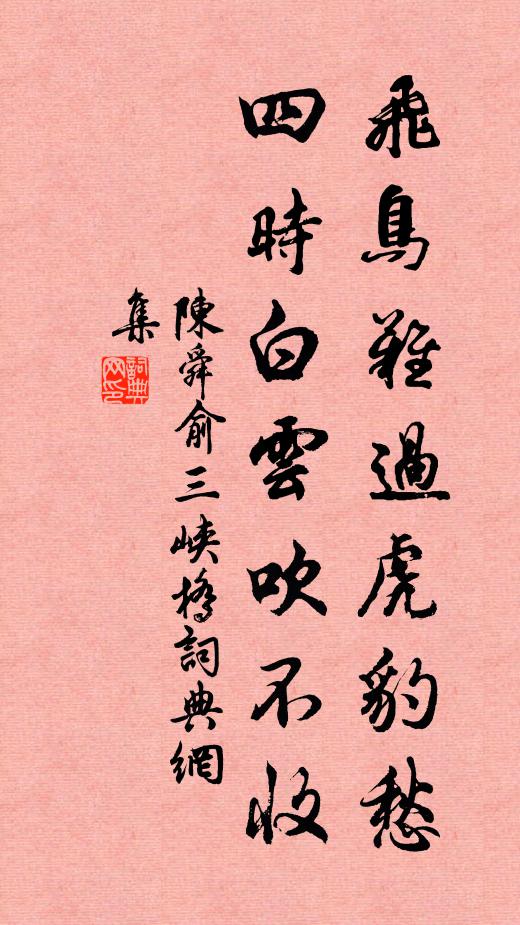 飛鳥難過虎豹愁
四時白雲吹不收
陳舜俞三峽橋詞典網
集
詞典
网印